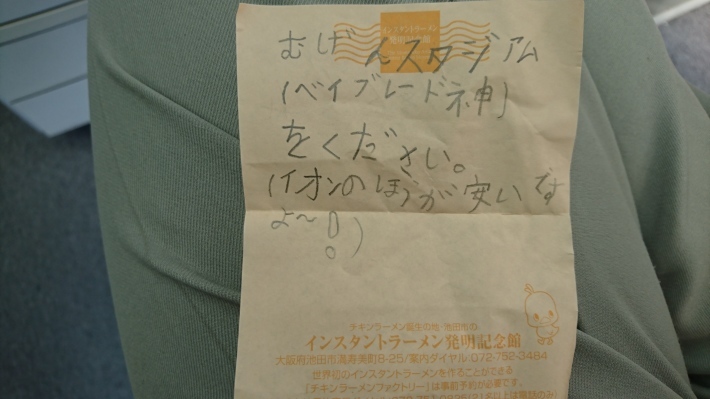 インスタントラーメン
発明記念館
むげんスタジアム
(ベイブレード神)
をください。
(イオンのほうが安いです
よ～!)
チキンラーメン誕生の地・池田市の
インスタントラーメン発明記念館
大阪府池田市満寿美町8-25/案内ダイヤル:072-752-3484
世界初のインスタントラーメンを作ることができる
「チキンラーメンファクトリー」は事前予約が必要です。